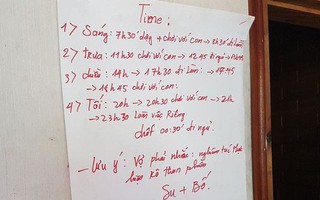 Time:
1) Sáng: 7h30 dậy + chơi với con → 8h30 đi làm
2) trưa: 11h30 với con → 12h45 đi ngủ
3) chiều: 14h → 17h30 đi làm → 17h45
→ 19h45 chơi với con.
4) Tối: 20h → 20h30 chơi với con → 21h
→ 23h30 làm việc riêng
chốt 00:30' đi ngủ.
– Lưu ý: Vợ phải nhắc: nghiêm túc thực
hiện kế
Su + Bố.